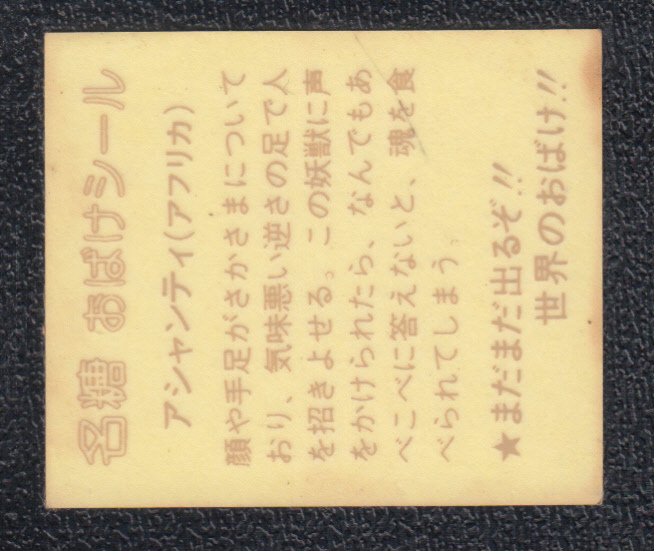 名糖 おばけシール
アシャンティ(アフリカ)
顔や手足がさかさまについて
おり、気味悪い逆さの足で人
を招きよせる。この妖獣に声
をかけられたら、なんでもあ
べこべに答えないと、魂を食
べられてしまう。
★まだまだ出るぞ!!
世界のおばけ!!